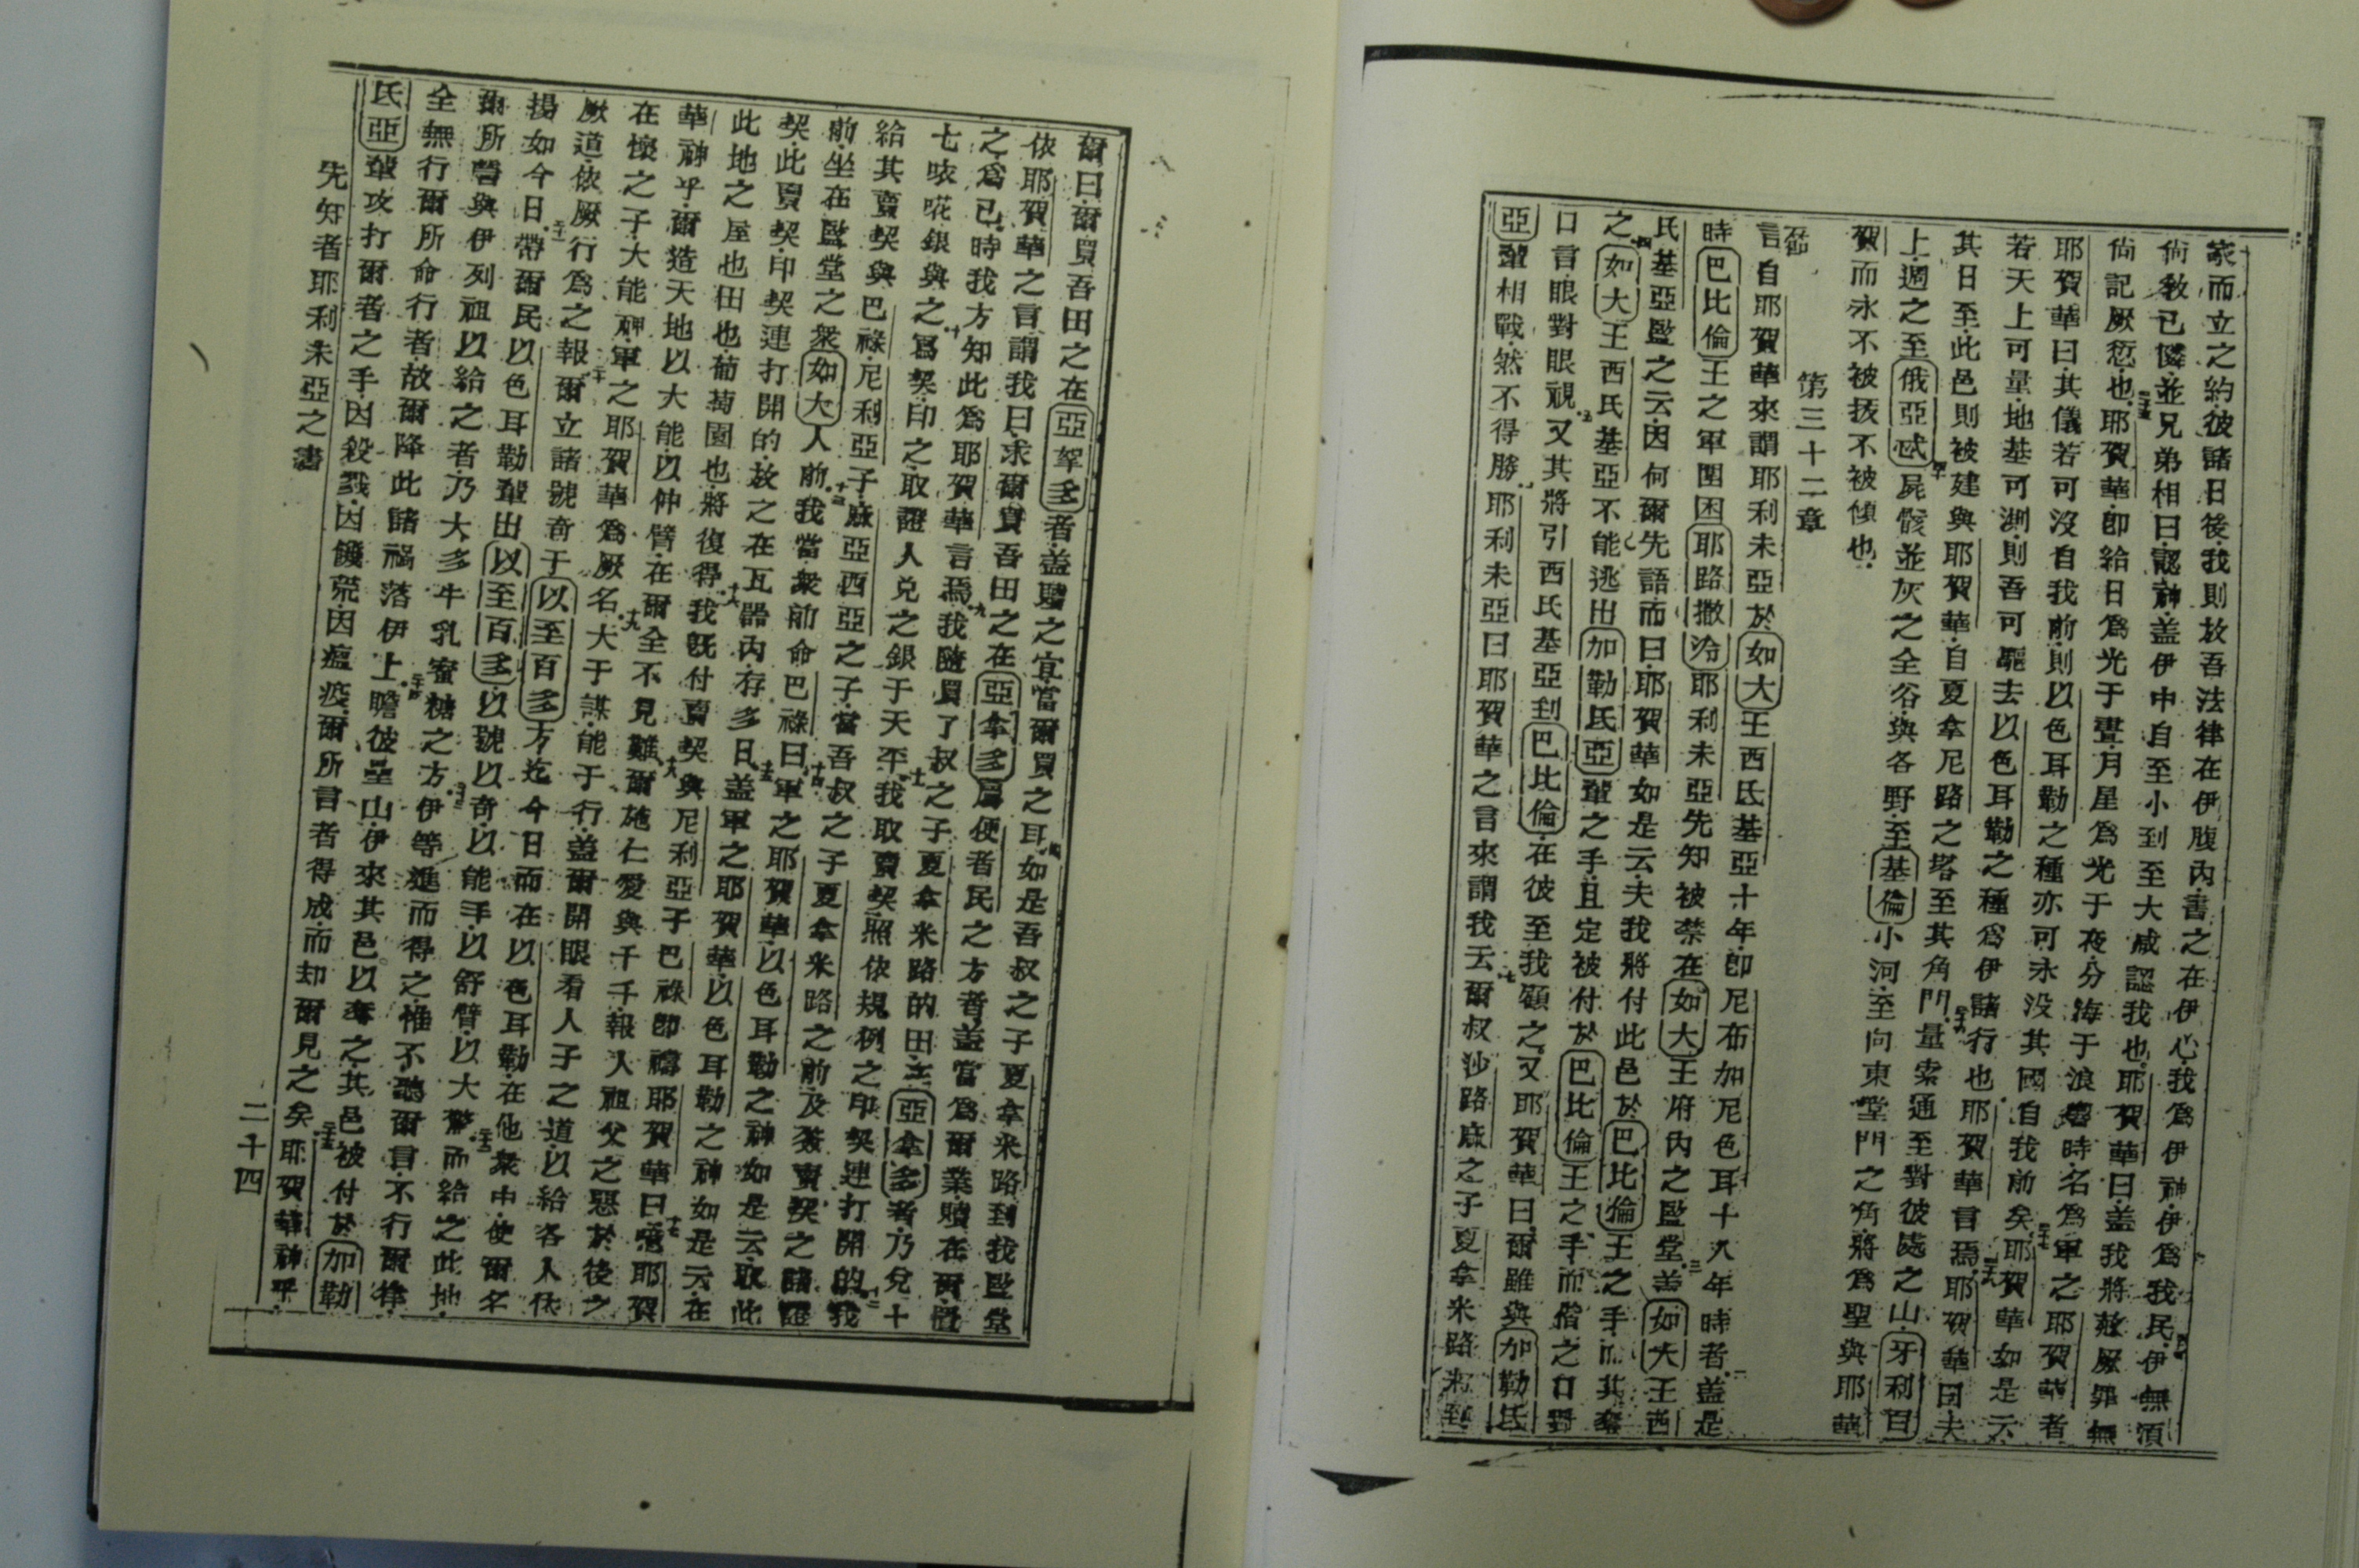 家而立之約彼諸日後我則放吾法律在伊腹內書之在伊心我爲伊神伊爲我民二十四伊無須
尙教已鄰並兄弟相曰認神盖伊中自至小到至大咸認我也耶賀華曰盖我將赦厥罪無
尙記厥愆也二十五耶賀華卽給日爲光于晝月星爲光于夜分海于浪響時名爲軍之耶賀華者
耶賀華曰其儀若可沒自我前則以色耳勒之種亦可永沒其國自我前矣二十七耶賀華如是云
若天上可量地基可測則吾可驅去以色耳勒之種爲伊諸行也耶賀華言焉二十八耶賀華曰夫
其日至此邑則被建與耶賀華自夏拿尼路之塔至其角門二十九量索通至對彼處之山牙利百
上週之至俄亞忒四十屍骸並灰之全谷與各野至基倫小河至向東堂門之角將爲聖與耶華
賀而永不被拔不被傾也
第三十二章
言自耶賀華來謂耶利未亞於如大王西氏基亞十年卽尼布加尼色耳十八年時者二盖是
時巴比倫王之軍圍困耶路撒冷耶利未亞先知被禁在如大王府內之監堂三盖如大王西
氏基亞監之云因何爾先語而曰耶賀華如是云夫我將付此邑於巴比倫王之手而其奪
之四如大王西氏基亞不能逃出加勒氏亞輩之手且定被付於巴比倫王之手而偕之口對
口言眼對眼視五又其將引西氏基亞到巴比倫在彼至我顧之又耶賀華曰爾雖與加勒氏
亞輩相戰然不得勝耶利未亞曰耶賀華之言來謂我云七爾叔沙路麻之子夏拿米路將到
爾曰爾買吾田之在亞拿多者盖贖之宜當爾買之耳八如是吾叔之子夏拿米路到我監堂
依耶賀華之言謂我曰求爾買吾田之在亞拿多屬便者民之方者盖當爲爾業贖在爾買
之爲已時我方知此爲耶賀華言焉九我隨買了叔之子夏拿米路的田在亞拿多者乃兌十
七咳㖿銀與之十爲契印之取證人兌之銀于天平十一我取賣契照依規例之印契連打開的十二我
給其賣契與巴祿尼利亞子麻亞西亞之子當吾叔之子夏拿米路之前及簽賣契之諸證
前坐在監堂之衆如大人前十三我當衆前命巴祿曰十四軍之耶賀華以色耳勒之神如是云取此
契此賣契印契連打開的放之在瓦器內存多日十五盖軍之耶賀華以色耳勒之神如是云在
此地之屋也田也葡萄園也將復得十六我旣付賣契與尼利亞子巴祿卽禱耶賀華曰十七噫耶賀
華神乎爾造天地以大能以伸臂在爾全不見難十八爾施仁愛與千千報人祖父之惡於後之
在懷之子大能神軍之耶賀華爲厥名十九大于謀能于行盖爾開眼看人子之道以給各人依
厥道依厥行爲之報二十爾立諸號奇于以至百多方迄今日而在以色耳勒在他衆中使爾名
揚如今日二十一帶爾民以色耳勒輩出以至百多以號以奇以能手以舒臂以大驚二十二而給之此地
爾所誓與伊列祖以給之者乃大多牛乳蜜糖之方二十三伊等進而得之惟不聽爾言不行爾律
全無行爾所命行者故爾降此諸禍落伊上二十四瞻彼壘山伊來其邑以奪之其邑被付於加勒
氏亞輩攻打爾者之手因殺戮因饑荒因瘟疫爾所言者得成而却爾見之矣二十五耶賀華神乎
先知者耶利未亞之書
二千四